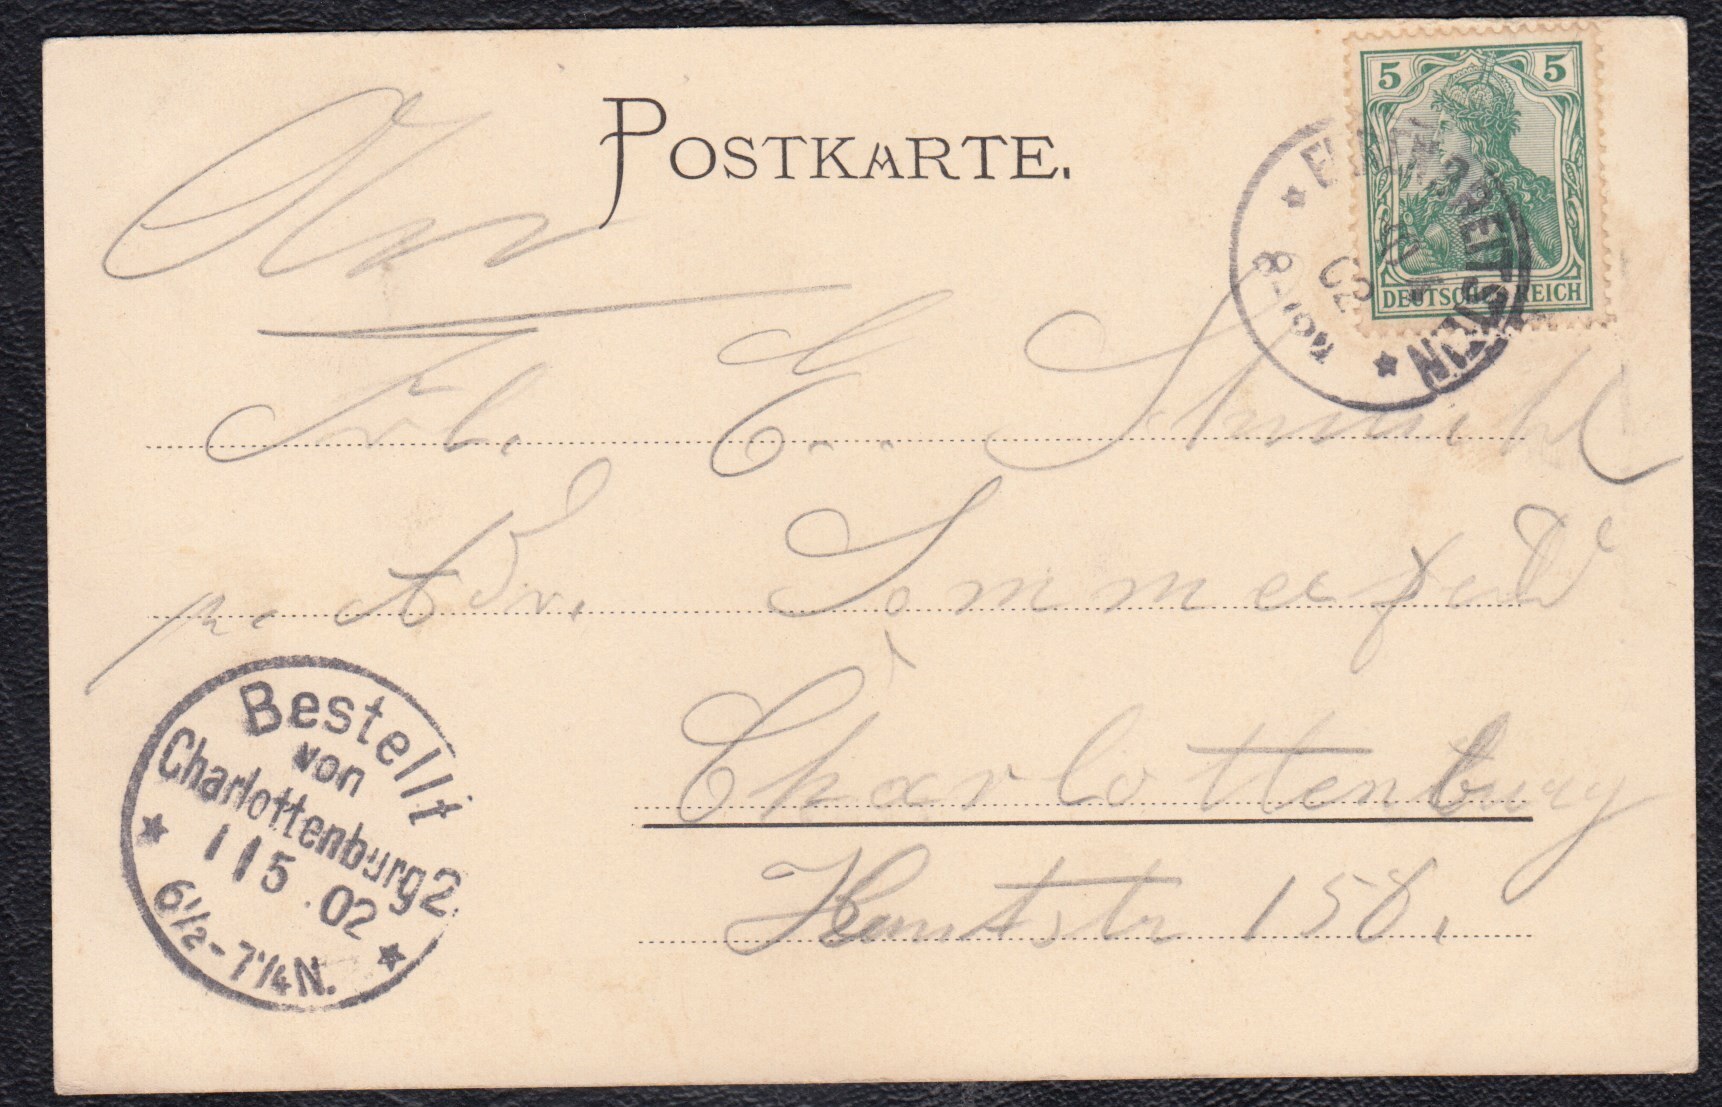 POSTKARTE.
5 5
DEUTSCHES REICH
EHRENBREITSTEIN
02
7-8 N.
Frl. E. Schmidt
pr. Adr. Sommerfeld
Charlottenburg
Kantstr 158.
Bestellt
von
Charlottenburg 2.
1 1 5 . 02
6½-7¼N.